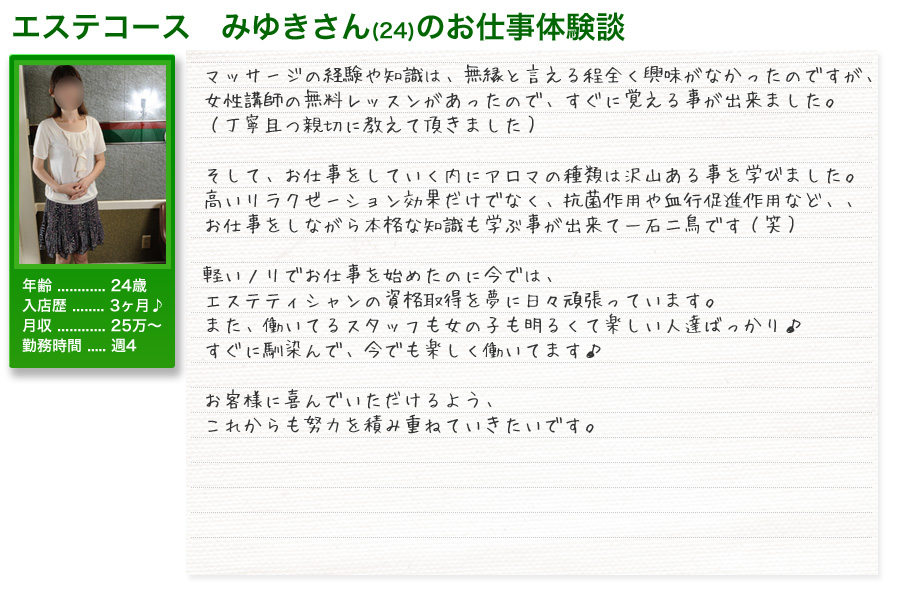 エステコース　みゆきさん(24)のお仕事体験談
年齢 ............ 24歳
入店歴 ........ 3ヶ月♪
月収 ............ 25万〜
勤務時間 ..... 週4
マッサージの経験や知識は、無縁と言える程全く興味がなかったのですが、
女性講師の無料レッスンがあったので、すぐに覚える事が出来ました。
（丁寧且つ親切に教えて頂きました）
そして、お仕事をしていく内にアロマの種類は沢山ある事を学びました。
高いリラクゼーション効果だけでなく、抗菌作用や血行促進作用など、、
お仕事をしながら本格な知識も学ぶ事が出来て一石二鳥です（笑）
軽いノリでお仕事を始めたのに今では、
エステティシャンの資格取得を夢に日々頑張っています。
また、働いてるスタッフも女の子も明るくて楽しい人達ばっかり♪
すぐに馴染んで、今でも楽しく働いてます♪
お客様に喜んでいただけるよう、
これからも努力を積み重ねていきたいです。